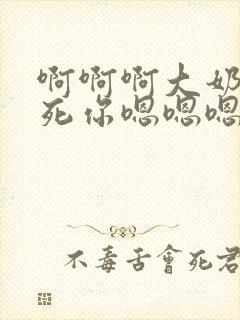 啊啊啊大奶
死你嗯嗯嗯
不毒舌會死君